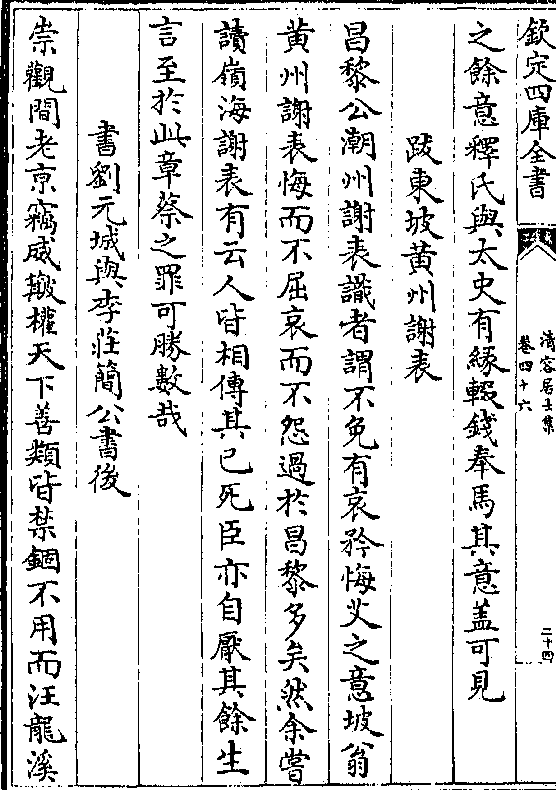 欽定四庫全書
清容居士集
卷四十六
二十四
之餘意釋氏與太史有縁輟錢奉馬其意盖可見
跋東坡黄州謝表
昌黎公潮州謝表識者謂不免有哀矜悔艾之意坡翁
黄州謝表悔而不屈哀而不怨過於昌黎多矣然余嘗
讀嶺海謝表有云人皆相傳其已死臣亦自厭其餘生
言至於此章蔡之罪可勝數哉
書劉元城與李莊簡公書後
崇觀間老京竊威擅權天下善類皆禁錮不用而汪龍溪